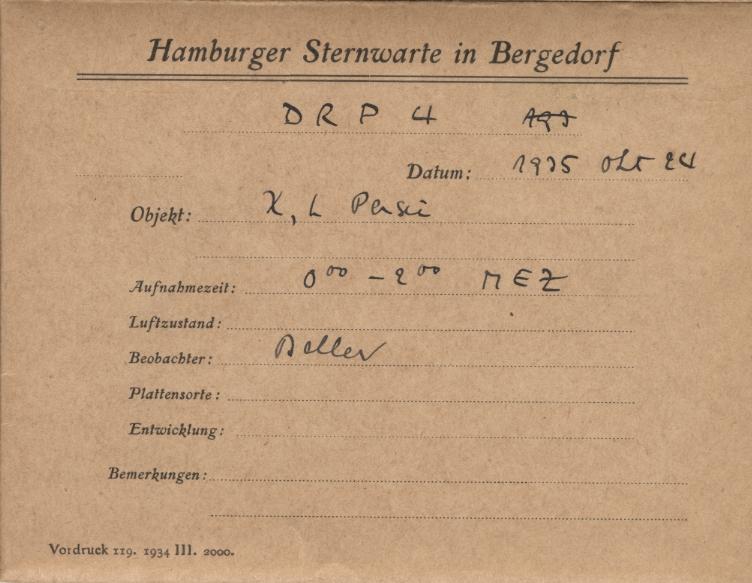 Hamburger Sternwarte in Bergedorf
D R P 4
Datum: 1935 Okt 24
Objekt: χ, h Persei
Aufnahmezeit: 0⁰⁰ – 2⁰⁰ MEZ
Luftzustand:
Beobachter:
Plattensorte:
Entwicklung:
Bemerkungen:
Vordruck 119. 1934 III. 2000.